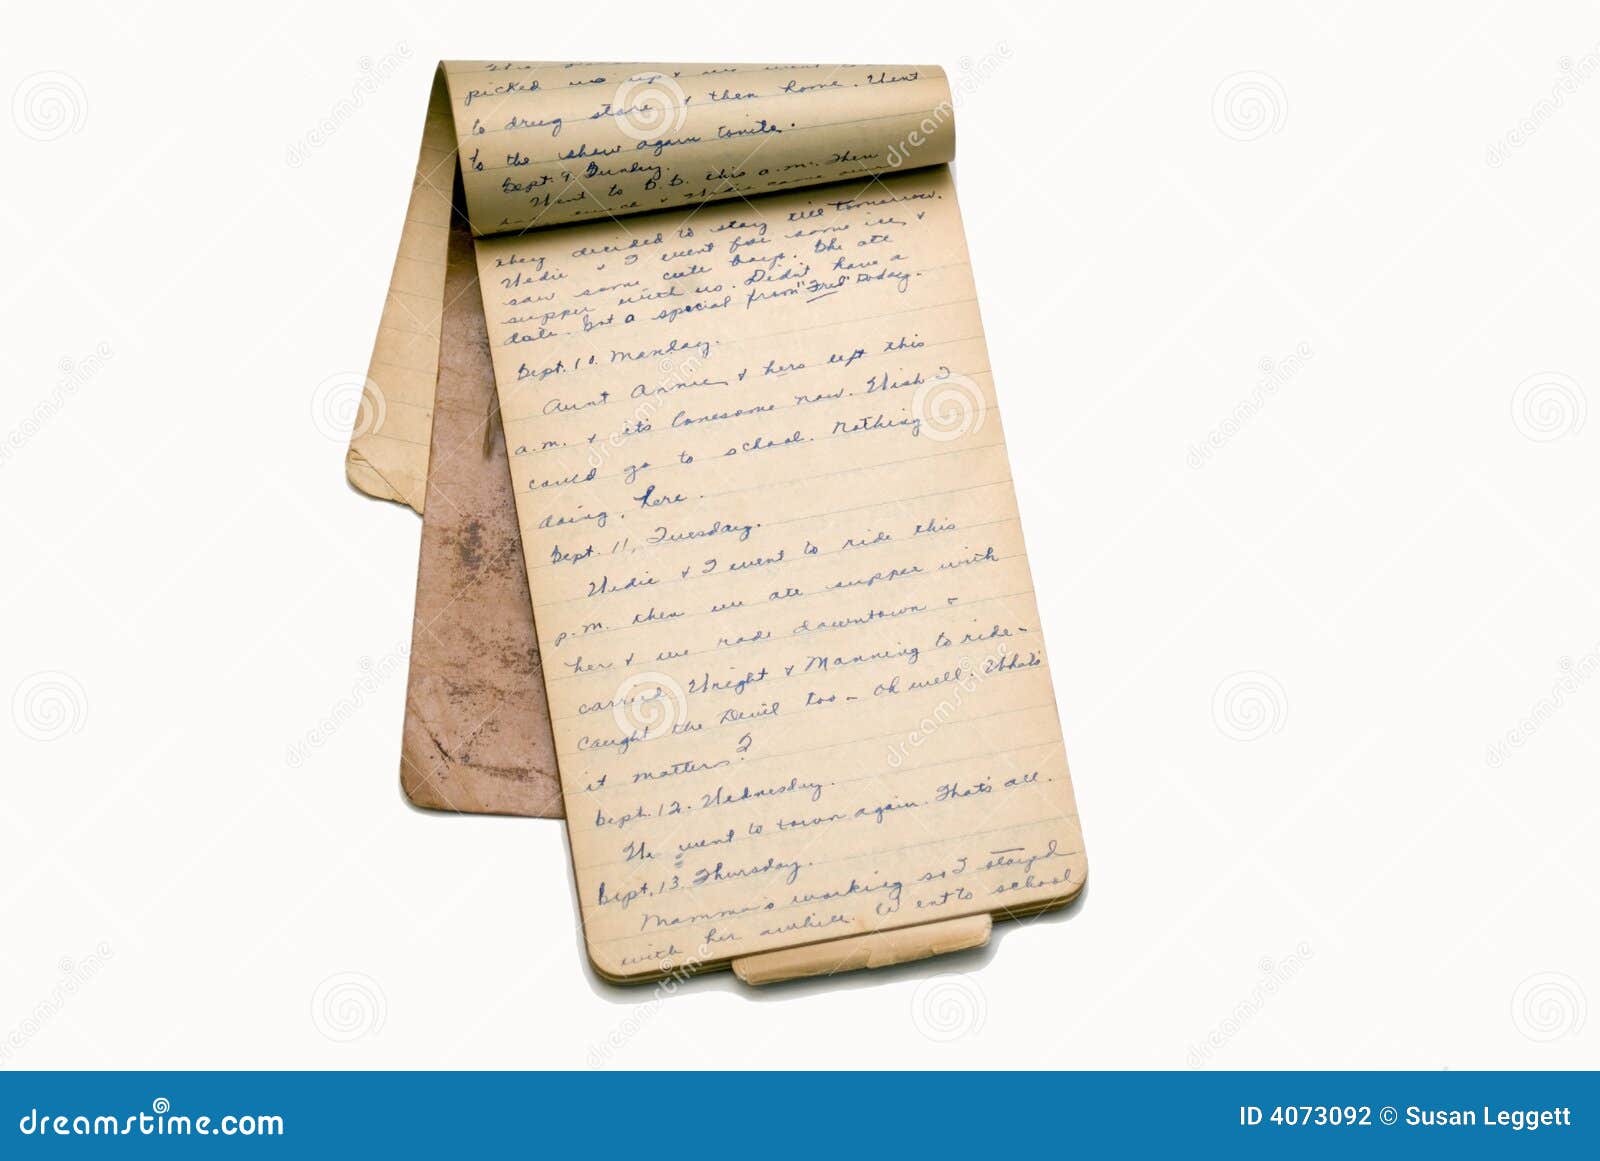 picked us up & we went
to drug store & then home. Went
to the show again tonite.
Sept. 9. Sunday.
Went to S.S. this a.m. Then
they decided to stay till tomorrow.
& I went for some ice &
saw some cute boys. She ate
supper with us. Didn't have a
date. Got a special from "Fred" Today.
Sept. 10. Monday.
Aunt Annie & hers left this
a.m. & it's lonesome now. Wish I
could go to school. Nothing
doing. here.
Sept. 11, Tuesday.
& I went to ride this
p.m. then we ate supper with
her & we rode downtown &
carried Wright & Manning to ride -
caught the Devil too - oh well. What's
it matter?
Sept. 12. Wednesday.
We went to town again. That's all.
Sept. 13. Thursday.
Mamma's working so I stayed
with her awhile. Went to school
dreamstime
dreamstime.com
ID 4073092 © Susan Leggett